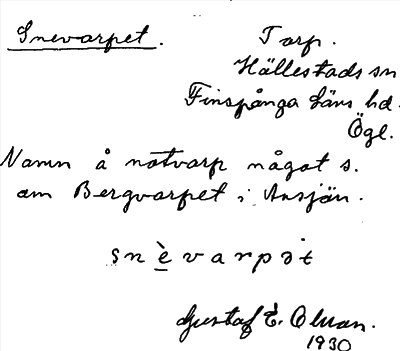 Snevarpet. Torp.
Hällestads sn
Finspånga läns hd.
Ögl.
Namn å notvarp något s.
om Bergvarpet i Ansjön.
snèvarpət
Gustaf E. Olsson.
1930